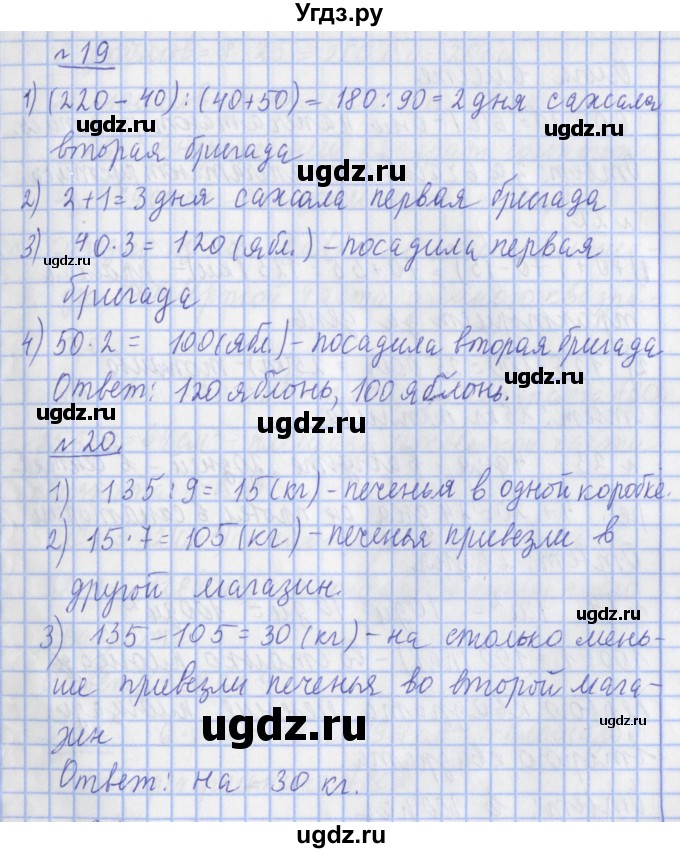 Угдз.ru
№ 19
1) (220 - 40) : (40+50) = 180 : 90 = 2 дня сажала
вторая бригада
2) 2+1 = 3 дня сажала первая бригада
3) 40 · 3 = 120 (ябл.) - посадила первая
бригада
4) 50 · 2 = 100 (ябл.) - посадила вторая бригада
Ответ: 120 яблонь, 100 яблонь.
№ 20.
1) 135 : 9 = 15 (кг) - печенья в одной коробке.
2) 15 · 7 = 105 (кг) - печенья привезли в
другой магазин.
3) 135 - 105 = 30 (кг) - на столько мень-
ше привезли печенья во второй мага-
зин
Ответ: на 30 кг.
ugdz.ru
ugdz.ru
ugdz.ru
ugdz.ru
ugdz.ru
ugdz.ru
ugdz.ru
ugdz.ru
ugdz.ru
ugdz.ru
ugdz.ru
ugdz.ru
ugdz.ru
ugdz.ru